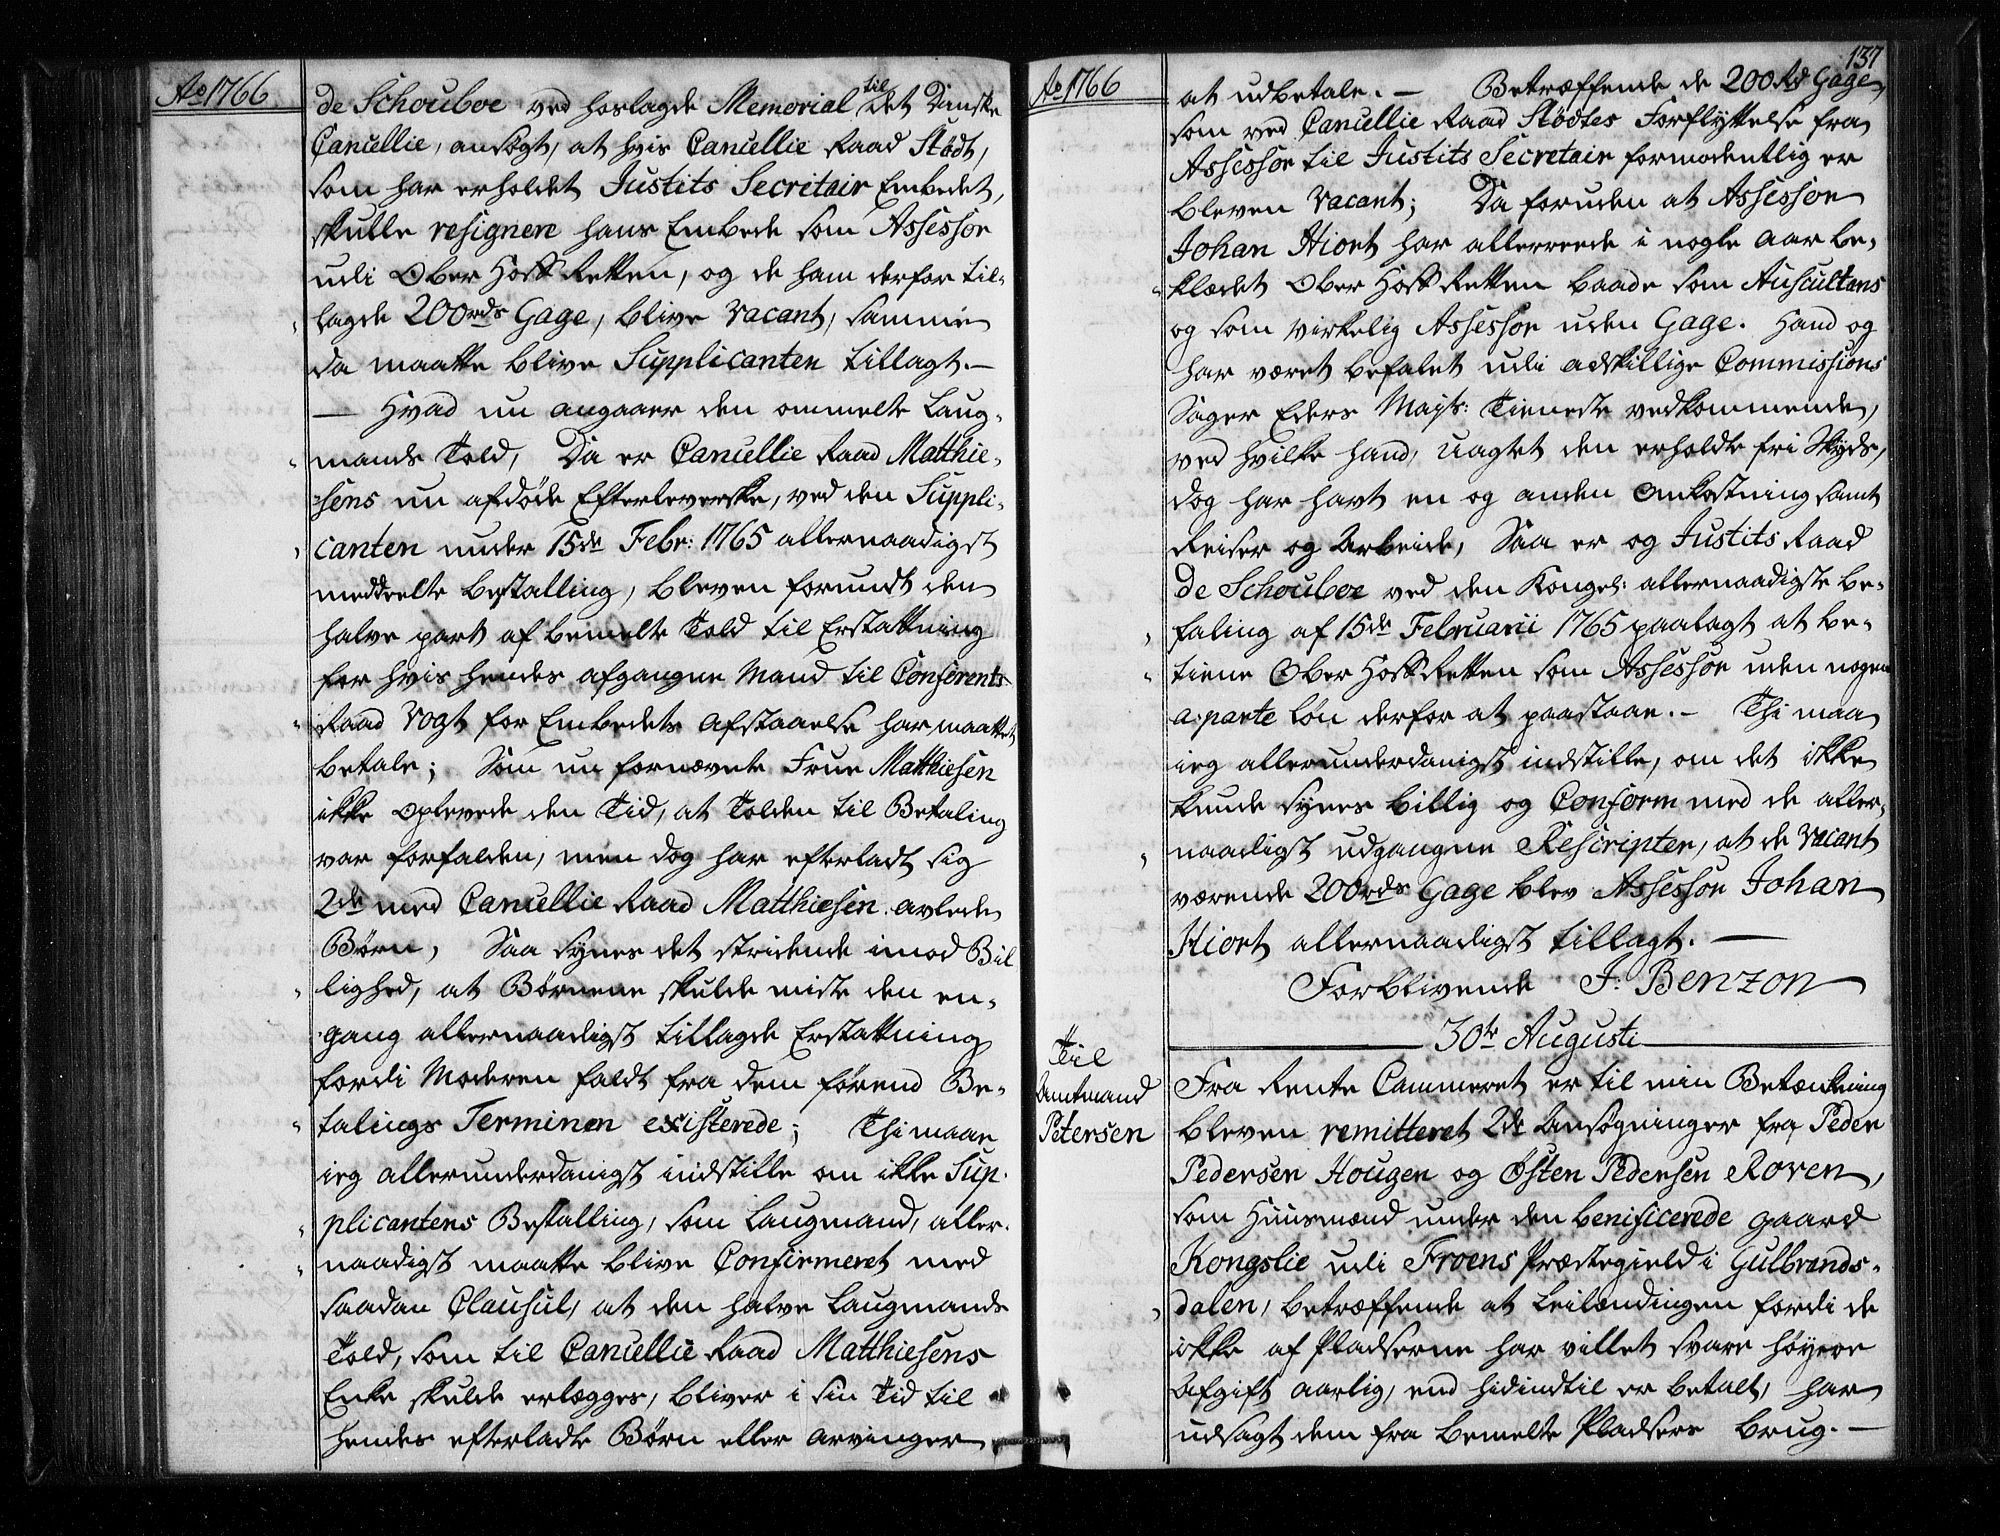 Ao 1766
de Schouboe ved hoslagde Memorial til Det Danske
Cancellie, ansøgt, at hvis Cancellie Raad Stødt,
som har erholdet Justits Secretair Embedet,
skulle resignere hans Embede som Assessor
udi Ober Hoff Retten, og de ham derfor til-
lagde 200rds Gage, blive vacant, samme
da maatte blive Supplicanten tillagt.—
— Hvad nu angaaer den ommelte Laug-
mands Told, Da er Cancellie Raad Matthie-
sens nu afdøde Efterleverske, ved den Suppli-
canten under 15de Febr: 1765 allernaadigst
meddeelte bestalling, bleven forundt den
halve part af bemelte Told til Erstattning
for hvis hendes afgangne Mand til Conferents
Raad Vogt for Embedets Afstaaelse har maattet
betale; Som nu fornævnte Frue Matthiesen
ikke oplevede den Tid, at Tolden til Betaling
var forfalden, men dog har efterladt sig
2de med Cancellie Raad Matthiesen avlede
Børn, Saa synes det stridende imod Bil
lighed, at Børnene skulde miste den en-
gang allernaadigst tillagde Erstattning
fordi Moderen faldt fra dem førend Be-
talings Terminen existerede; Thi maae
ieg allerunderdanigst indstille om ikke Sup-
plicantens Bestalling, som Laugmand, aller-
naadigst maatte blive Confirmeret med
saadan Clausul, at den halve Laugmands
Told, som til Cancellie Raad Matthiesens
Enke skulde erlægges, bliver i sin Tid til
hendes efterladte Børn eller Arvinger
137
Ao 1766
at udbetale.— Betræffende de 200 Rd Gage,
som ved Cancellie Raad Stødtes Forflyttelse fra
Assessor til Justits Secretair formodentlig er
bleven vacant; Da foruden at Assessor
Johan Hiort har allerreede i nogle Aar be-
klædet Ober Hoff Retten baade som Auscultans
og som virkelig Assessor uden Gage. Hand og
har været befalet udi adskillige Commissions
Sager Eders Mayts: Tieneste vedkommende,
ved hvilke hand, uagtet den erholdte fri Skyds,
dog har havt en og anden Omkostning samt
Reiser og Arbeide, Saa er og Justits Raad
de Schouboe ved den Kongel: allernaadigste be-
faling af 15de Februarii 1765 paalagt at be-
tiene Ober Hoff Retten som Assessor uden nogen
a parte løn derfor at paastaae.— Thi maa
ieg allerunderdanigst indstille, om det ikke
kunde synes billig og Conform med de aller-
naadigst udgangne Rescripter, at de vacant
værende 200rds Gage blev Assessor Johan
Hiort allernaadigst tillagt.—
Forblivende J: Benzon
30te Augusti
Til
Amtmand
Petersen
Fra Rente Cammeret er til min Betænkning
bleven remitteret 2de Ansøgninger fra Peder
Pedersen Hougen og Østen Pedersen Roven,
som Huusmænd under den benificerede gaard
Kongslie udi Froens Præstegield i Gulbrands-
dalen, betræffende at Leilændingen fordi de
ikke af Pladserne har villet svare høyere
Afgift aarlig, end hidindtil er betalt, har
udsagt dem fra bemelte Pladsers brug.—